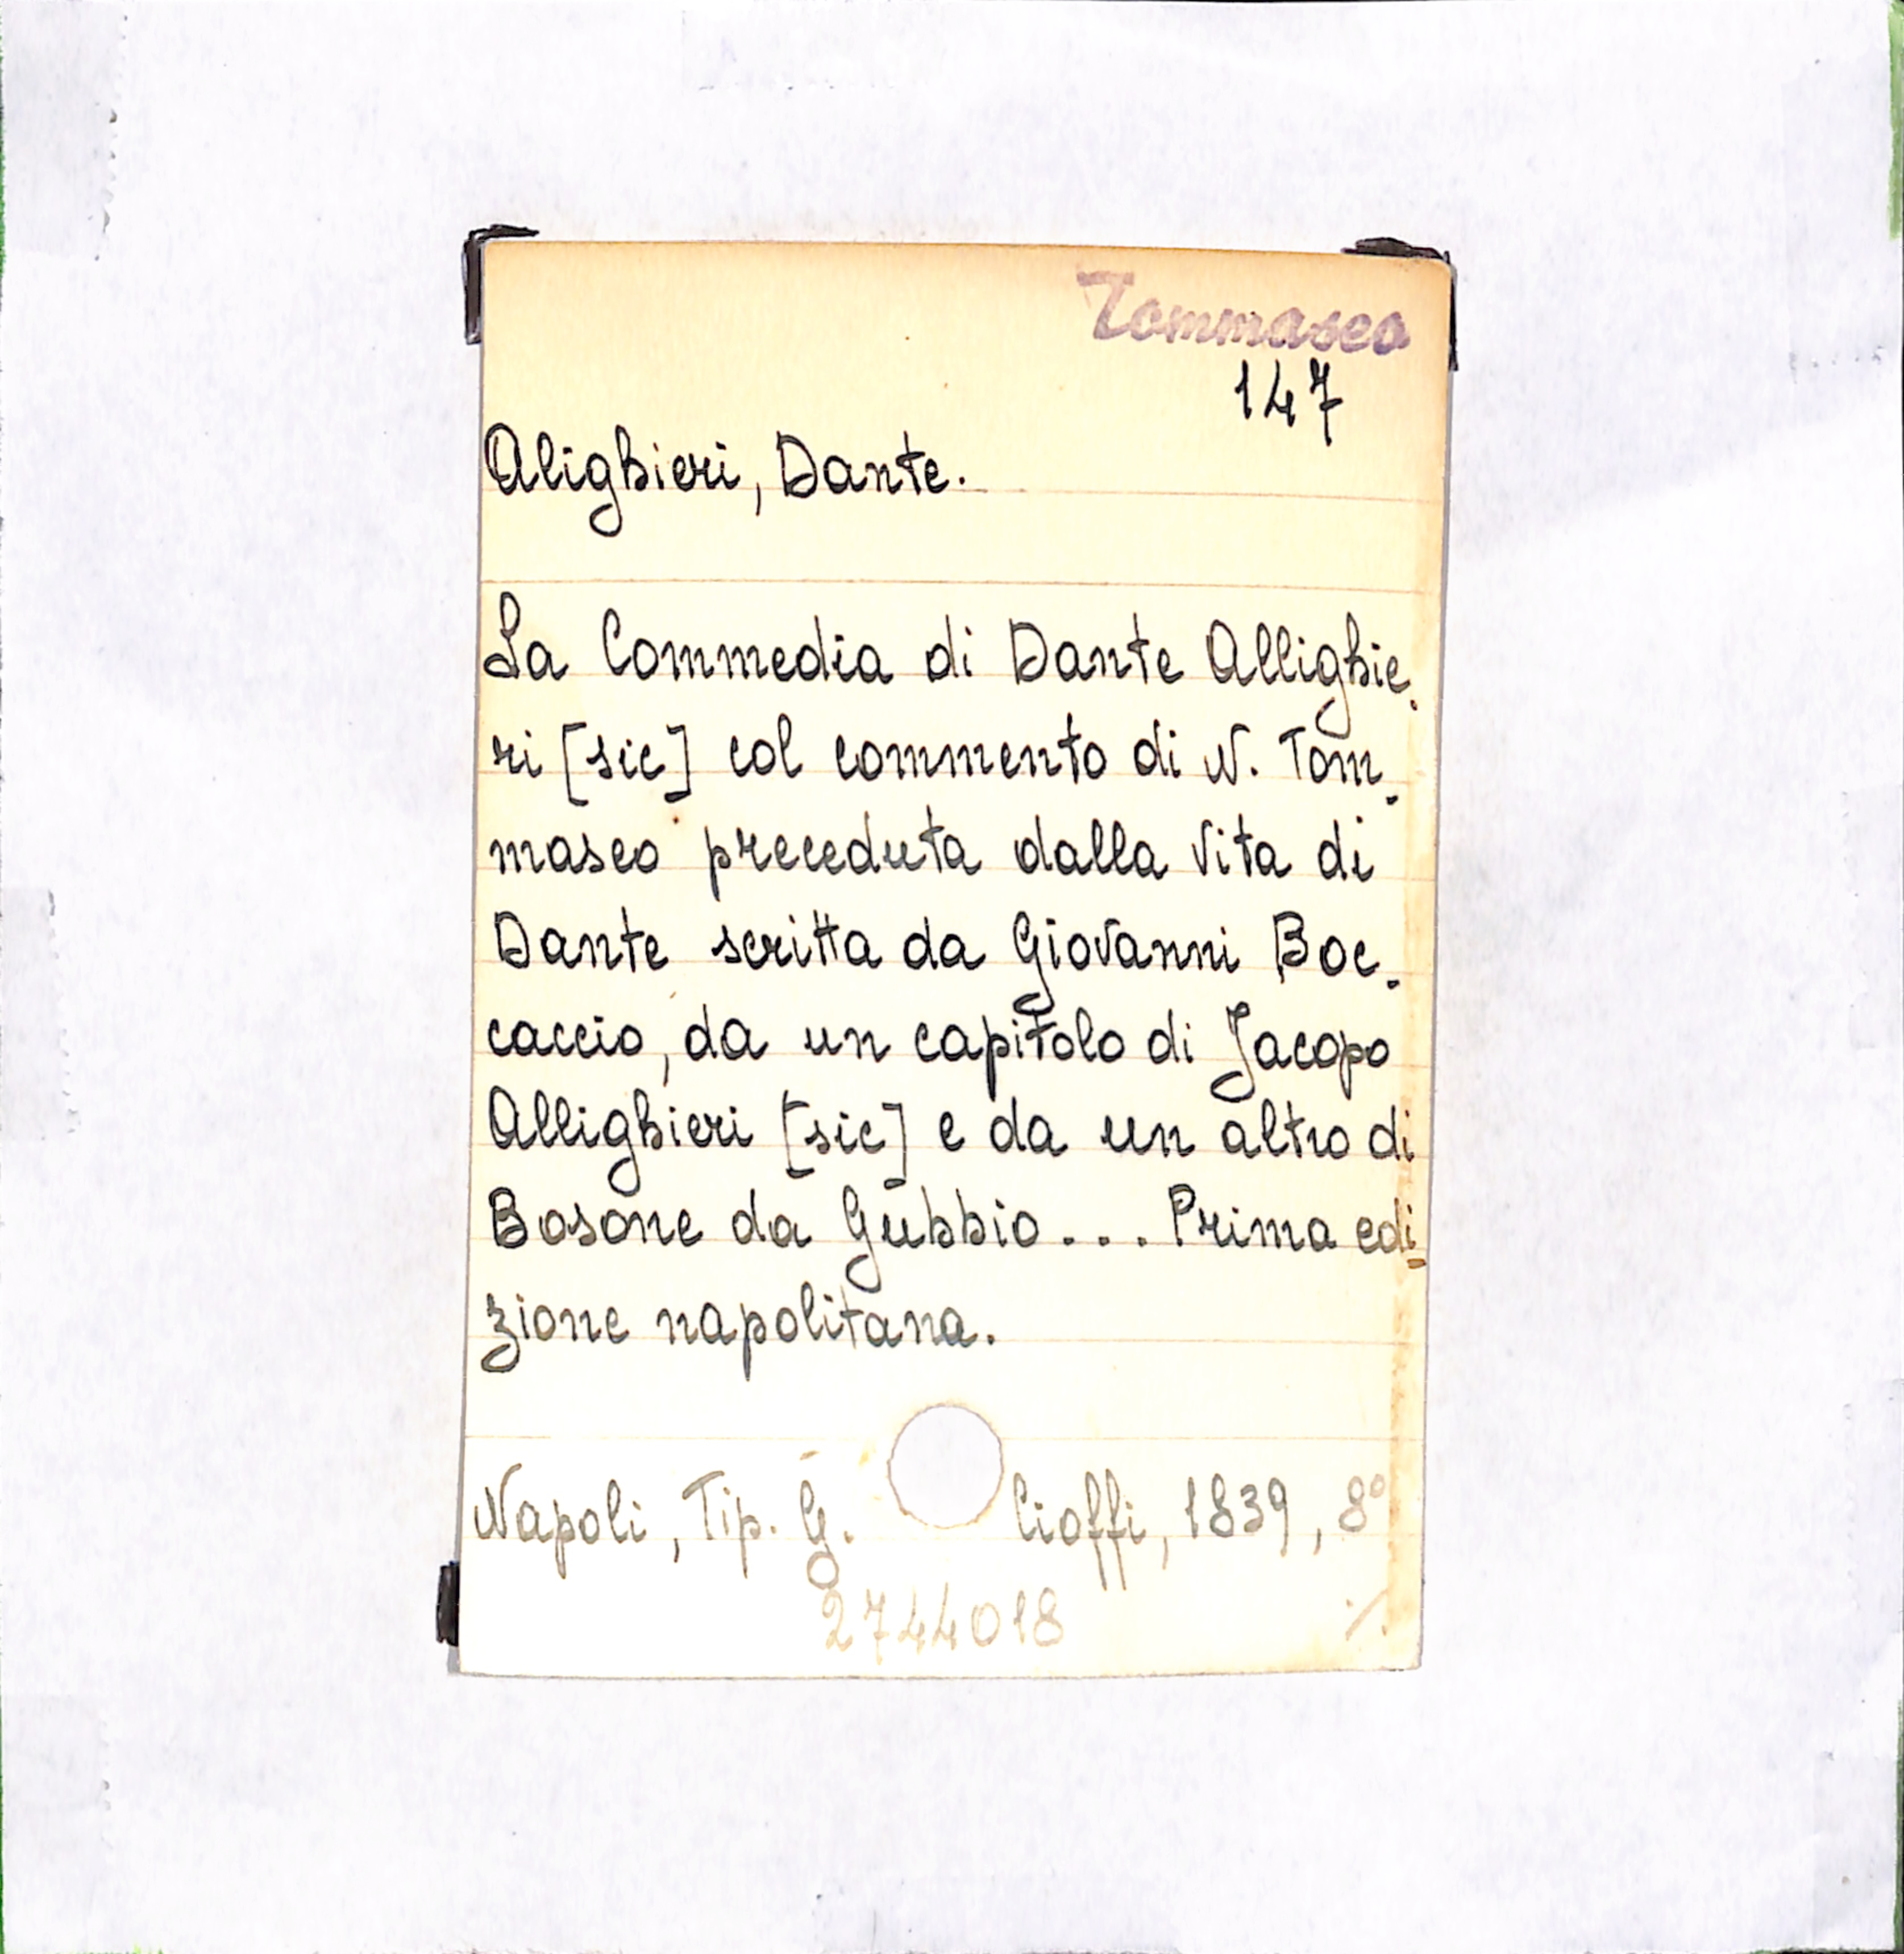 Tommaseo
147
Alighieri, Dante.
La Commedia di Dante Allighie-
ri [sic] col commento di N. Tom-
maseo preceduta dalla vita di
Dante scritta da Giovanni Boc-
caccio, da un capitolo di Jacopo
Allighieri [sic] e da un altro di
Bosone da Gubbio... Prima edi-
zione napolitana.
Napoli, Tip. G. Cioffi, 1839, 8°
2744018 ./.